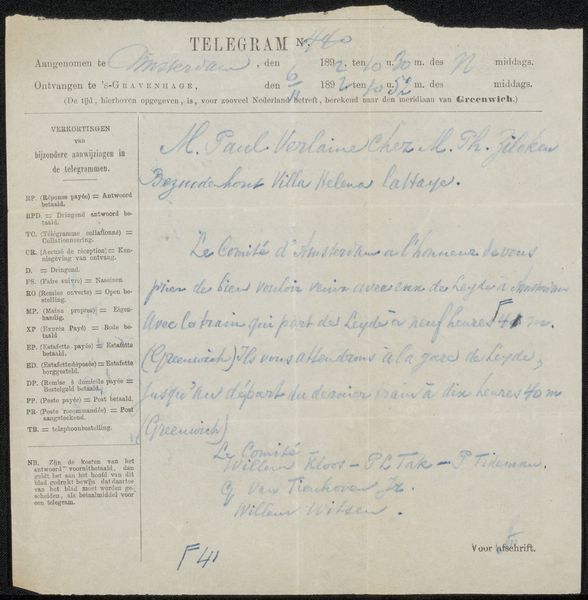 TELEGRAM No. 440
Aangenomen te Amsterdam, den 6/11 1892, ten 10 u. 30 m. des N middags.
Ontvangen te 's-GRAVENHAGE, den 6/11 1892, ten 10 u. 52 m. des middags.
(De tijd, hierboven opgegeven, is, voor zooveel Nederland betreft, berekend naar den meridiaan van Greenwich.)
VERKORTINGEN
van
bijzondere aanwijzingen in
de telegrammen.
RP. (Réponse payée) = Antwoord
betaald.
RPD. = Dringend antwoord be-
taald.
TC. (Télégramme collationné) =
Collationneering.
CR. (Accusé de réception) = Ken-
nisgeving van ontvang.
D. = Dringend.
FS. (Faire suivre) = Nazeinen
RO (Remise ouverte) = Open be-
stelling.
MP. (Mains propres) = Eigen-
handig.
XP (Exprès Payé) = Bode be-
taald
EP. (Estafette payée) = Estafette
betaald.
ED. (Estafette déposée) = Estafette
borggesteld.
DP. (Remise à domicile payée) =
Bestelgeld betaald.
PP. (Poste payée) = Post betaald.
PR. (Poste recommandée) = Post
aangeteekend.
TB. = telephoonbestelling.
NB. Zijn de kosten van het
antwoord vooruitbetaald, dan
geldt het aan het hoofd van dit
blad gedrukt bewijs dat daartoe
van het blad moet worden ge-
scheiden, als betaalmiddel voor
een telegram.
M. Paul Verlaine Chez M. Ph. Zilcken
Bezuidenhout Villa Helena la Haye.
Le Comité d'Amsterdam a l'honneur de vous
prier de bien vouloir venir avec eux de Leyde à Amsterdam
Avec le train qui part de Leyde à neuf heures F 41 m.
(Greenwich) Ils vous attendrons à la gare de Leyde,
jusqu'au départ du dernier train à dix heures 40 m
(Greenwich)
Le Comité
Willem Kloos – P L Tak – P. Tideman.
G van Tienhoven Jr.
Willem Witsen.
F 41
Voor afschrift.